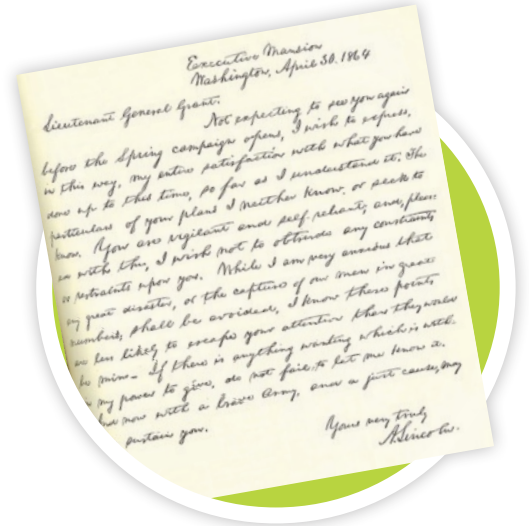 Executive Mansion
Washington, April 30. 1864
Lieutenant General Grant.
Not expecting to see you again
before the Spring campaign opens, I wish to express,
in this way, my entire satisfaction with what you have
done up to this time, so far as I understand it. The
particulars of your plans I neither know, or seek to
know. You are vigilant and self-reliant; and, pleas-
ed with this, I wish not to obtrude any constraints
or restraints upon you. While I am very anxious that
any great disaster, or the capture of our men in great
numbers, shall be avoided, I know these points
are less likely to escape your attention than they would
be mine— If there is anything wanting which is with-
in my power to give, do not fail to let me know it.
And now with a brave Army, and a just cause, may
sustain you.
Yours very truly
A. Lincoln.